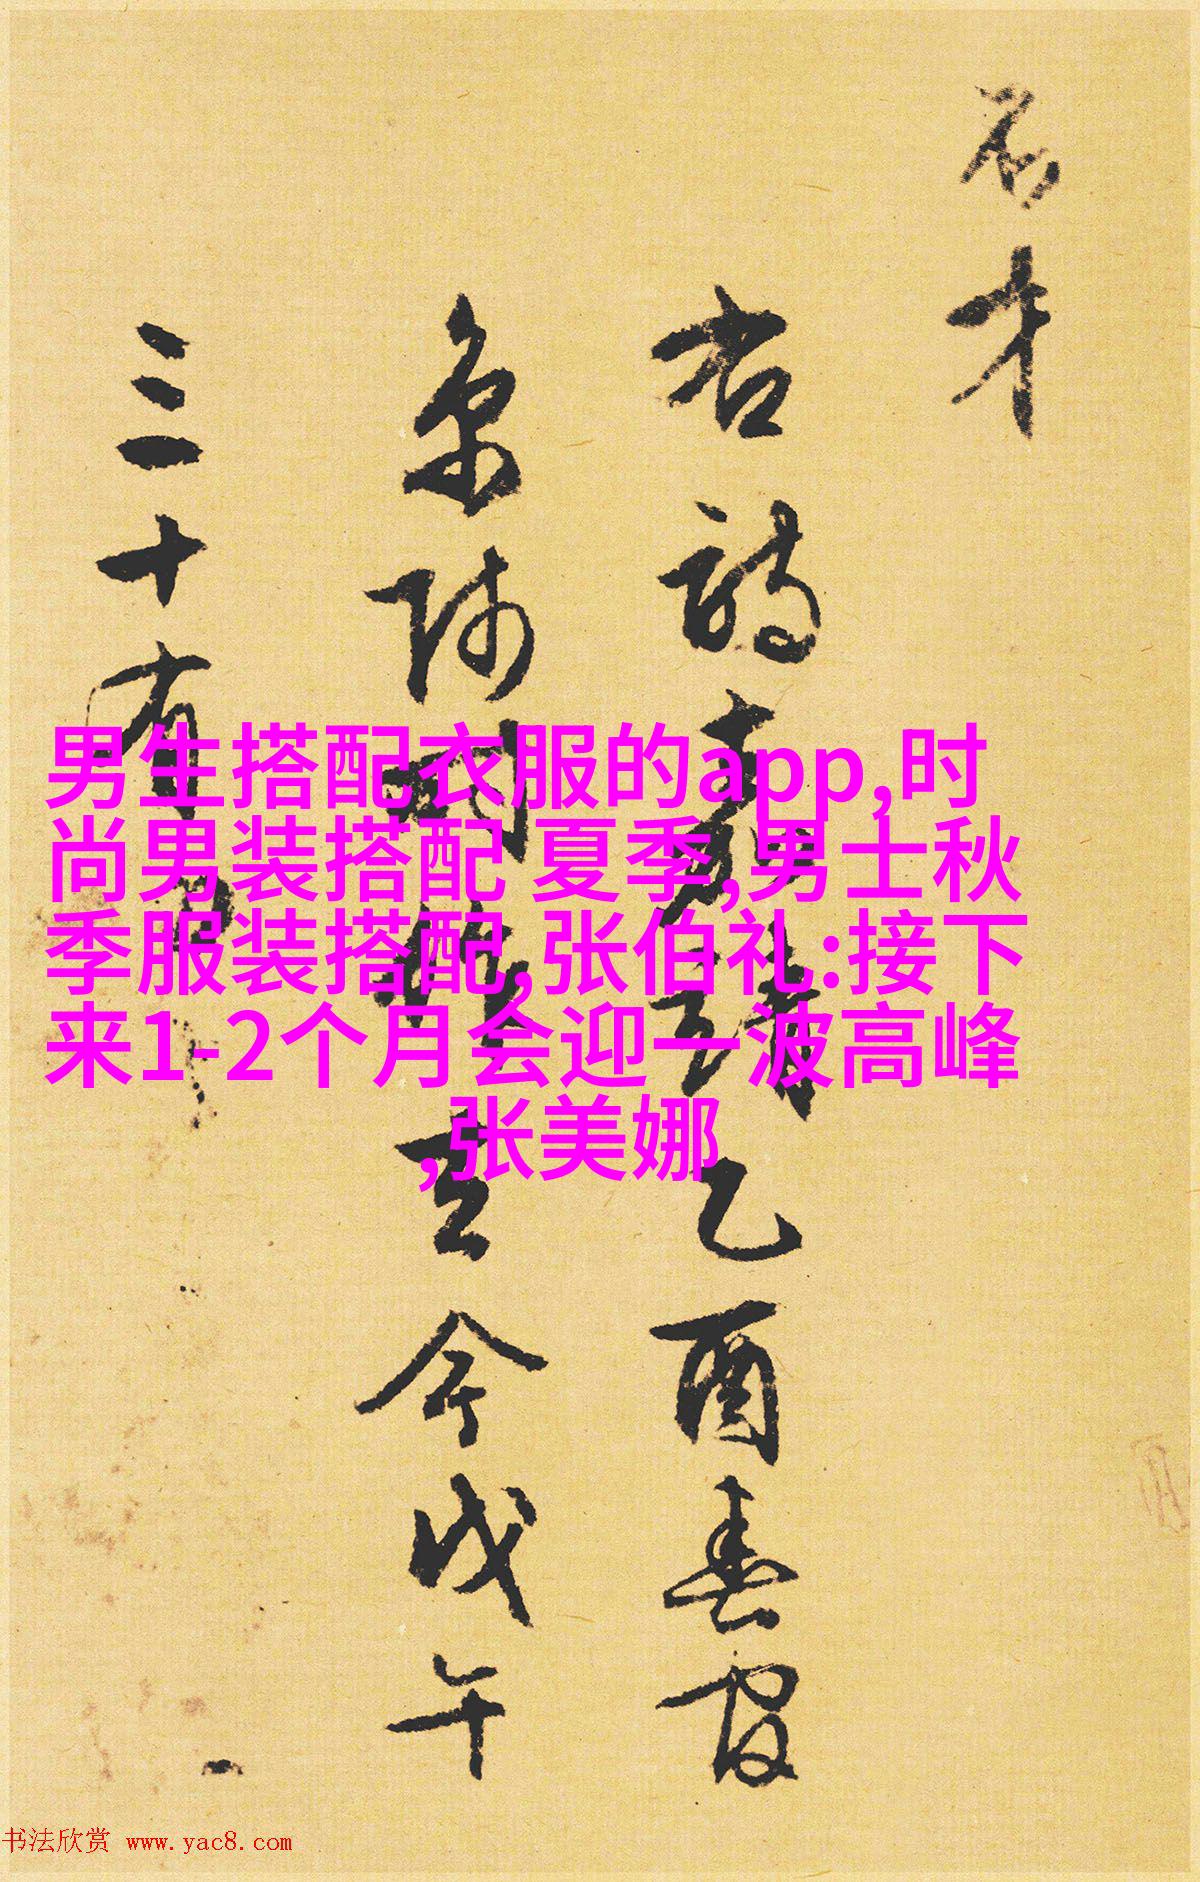 名才
右诗
乙酉春官
京师
至今戊午
三十有
男生搭配衣服的app,时
尚男装搭配 夏季,男士秋
季服装搭配,张伯礼:接下
来1-2个月会迎一波高峰
,张美娜
书法欣赏 www.yac8.com